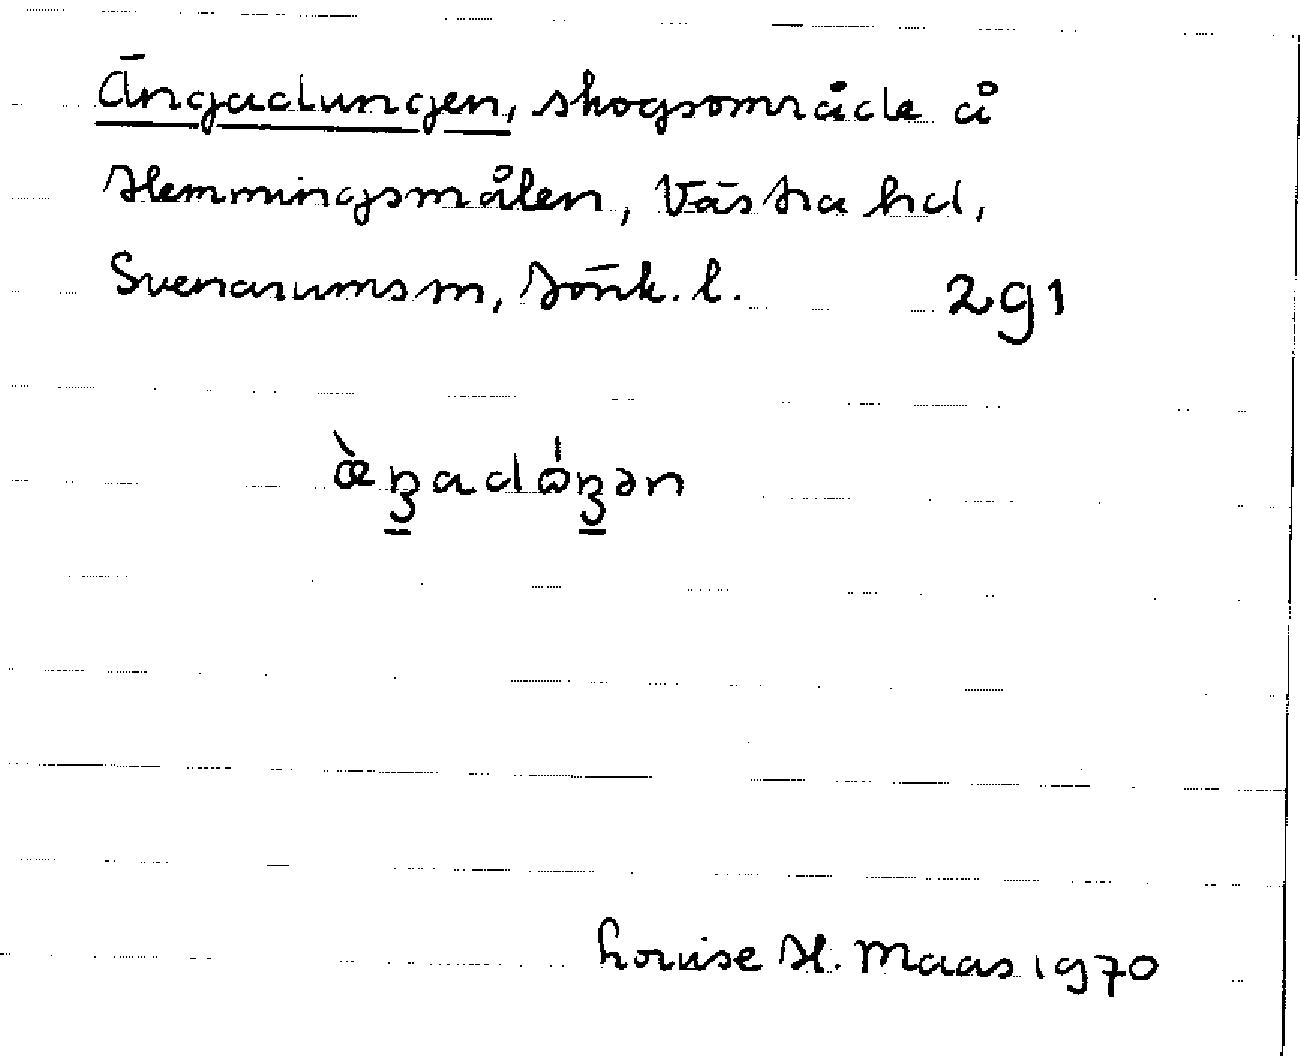 Ängadungen, skogsområde å
Hemmingsmålen, Västra hd,
Svenarums sn, Jönk. l. 2g1
Louise H. Maas 1970